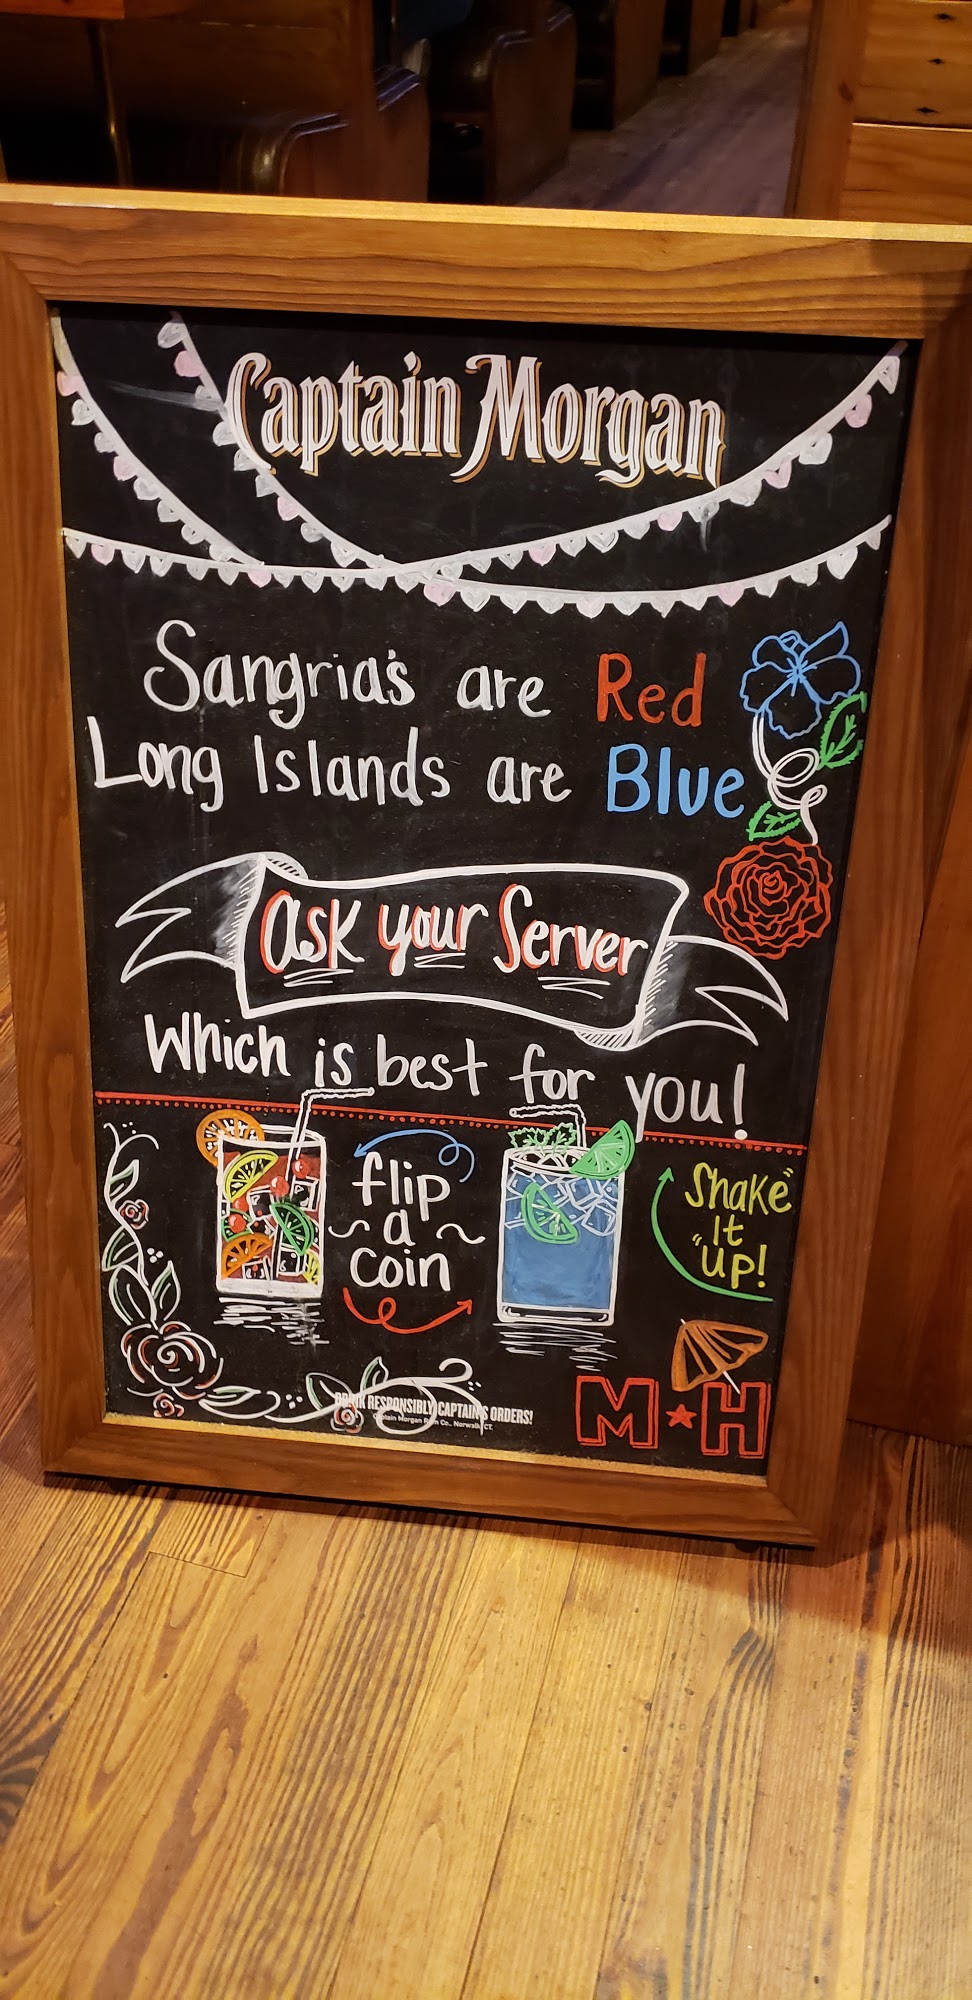 Captain Morgan
Sangria's are Red
Long Islands are Blue
Ask your Server
Which is best for you!
flip
~ a ~
coin
Shake"
it
"up!
DRINK RESPONSIBLY. CAPTAIN'S ORDERS!
Captain Morgan Rum Co., Norwalk, CT.
M★H